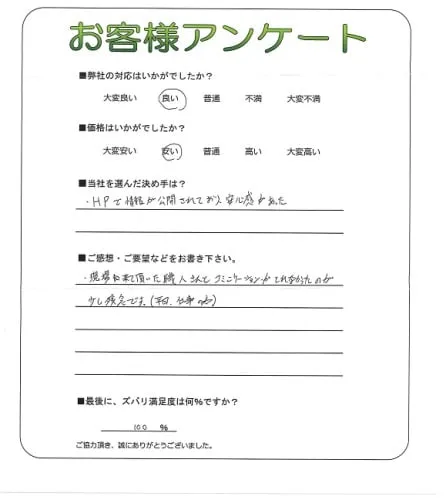 お客様アンケート
■弊社の対応はいかがでしたか?
大変良い 良い 普通 不満 大変不満
■価格はいかがでしたか?
大変安い 安い 普通 高い 大変高い
■当社を選んだ決め手は?
・HPで情報が公開されており安心感があった
■ご感想・ご要望などをお書き下さい。
・現場に来て頂いた職人さんとコミュニケーションがとれなかったのが
少し残念です。(平日、仕事の為)
■最後に、ズバリ満足度は何%ですか?
100 %
ご協力頂き、誠にありがとうございました。